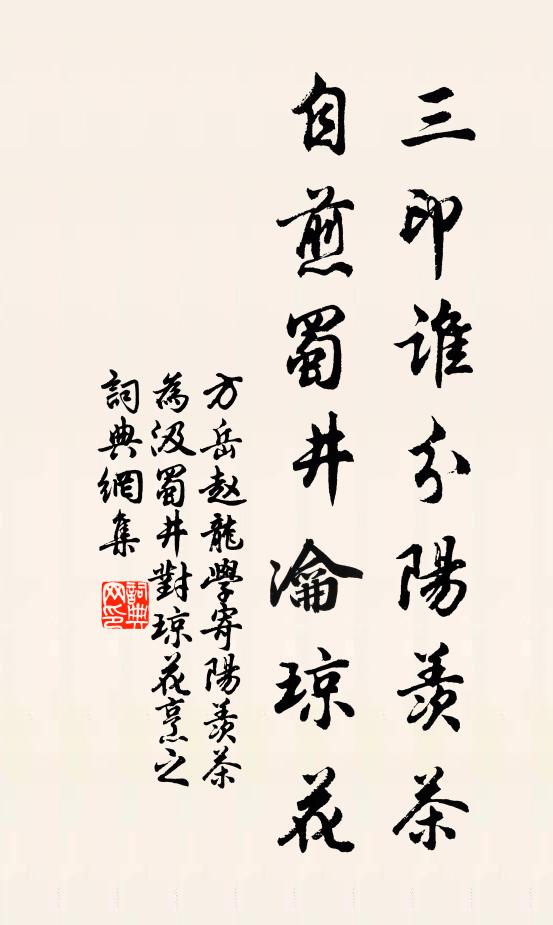 三印誰分陽羨茶
自煎蜀井瀹瓊花
方岳赵龍學寄陽羨茶
為汲蜀井對琼花烹之
詞典網集
詞典
网印